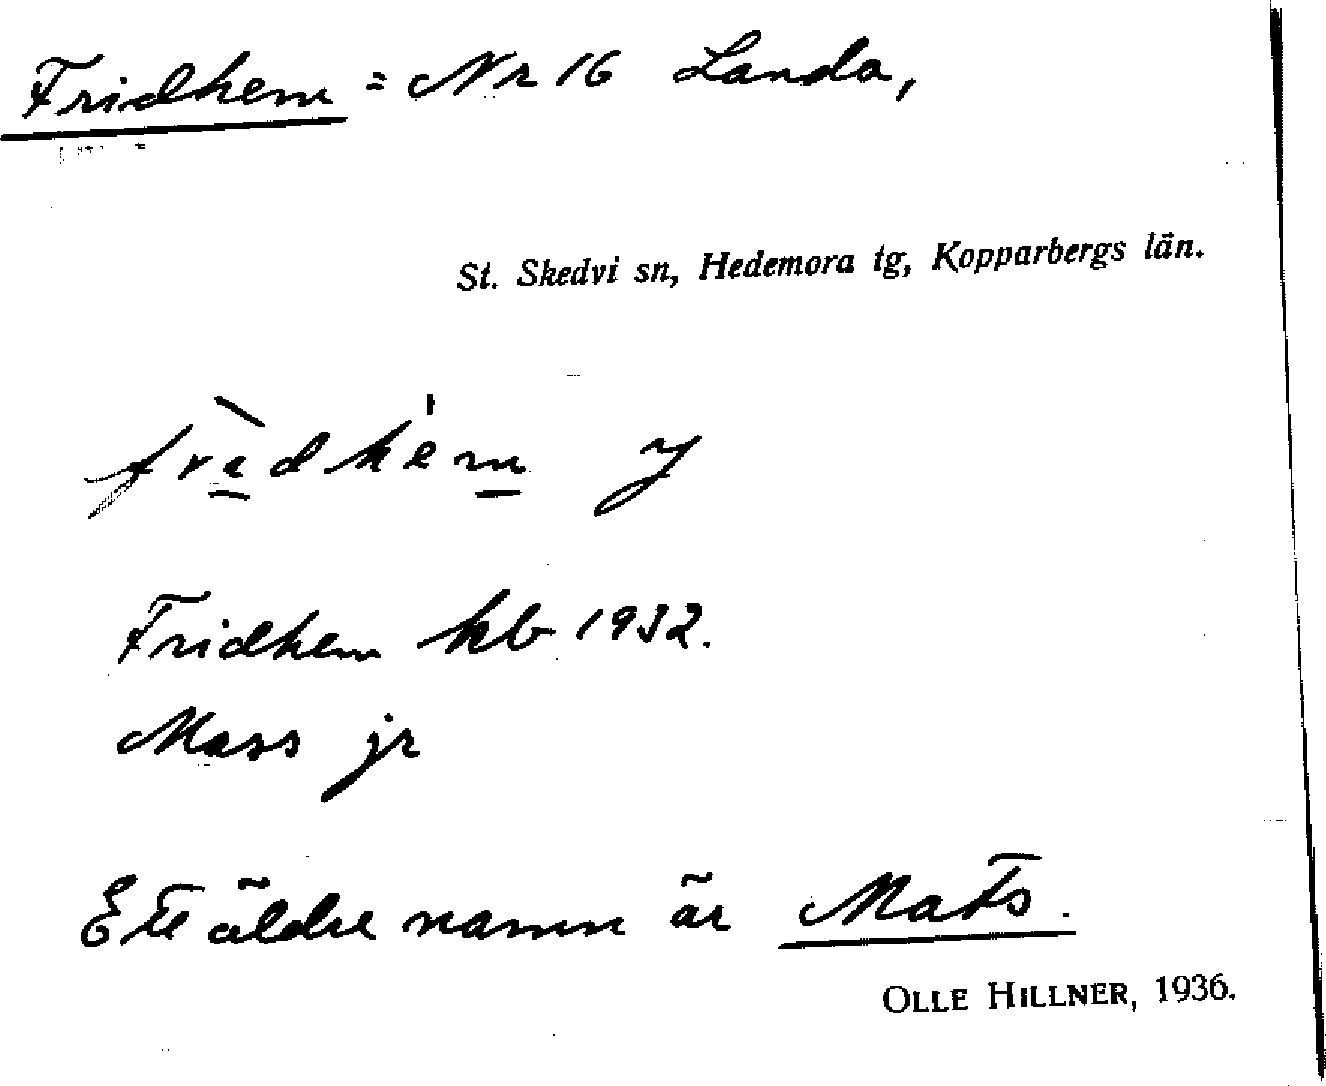 Fridhem = Nr 16 Landa,
St. Skedvi sn, Hedemora tg, Kopparbergs län.
Fridhem kb 1932.
Mass jr
Ett äldre namn är Mats.
OLLE HILLNER, 1936.